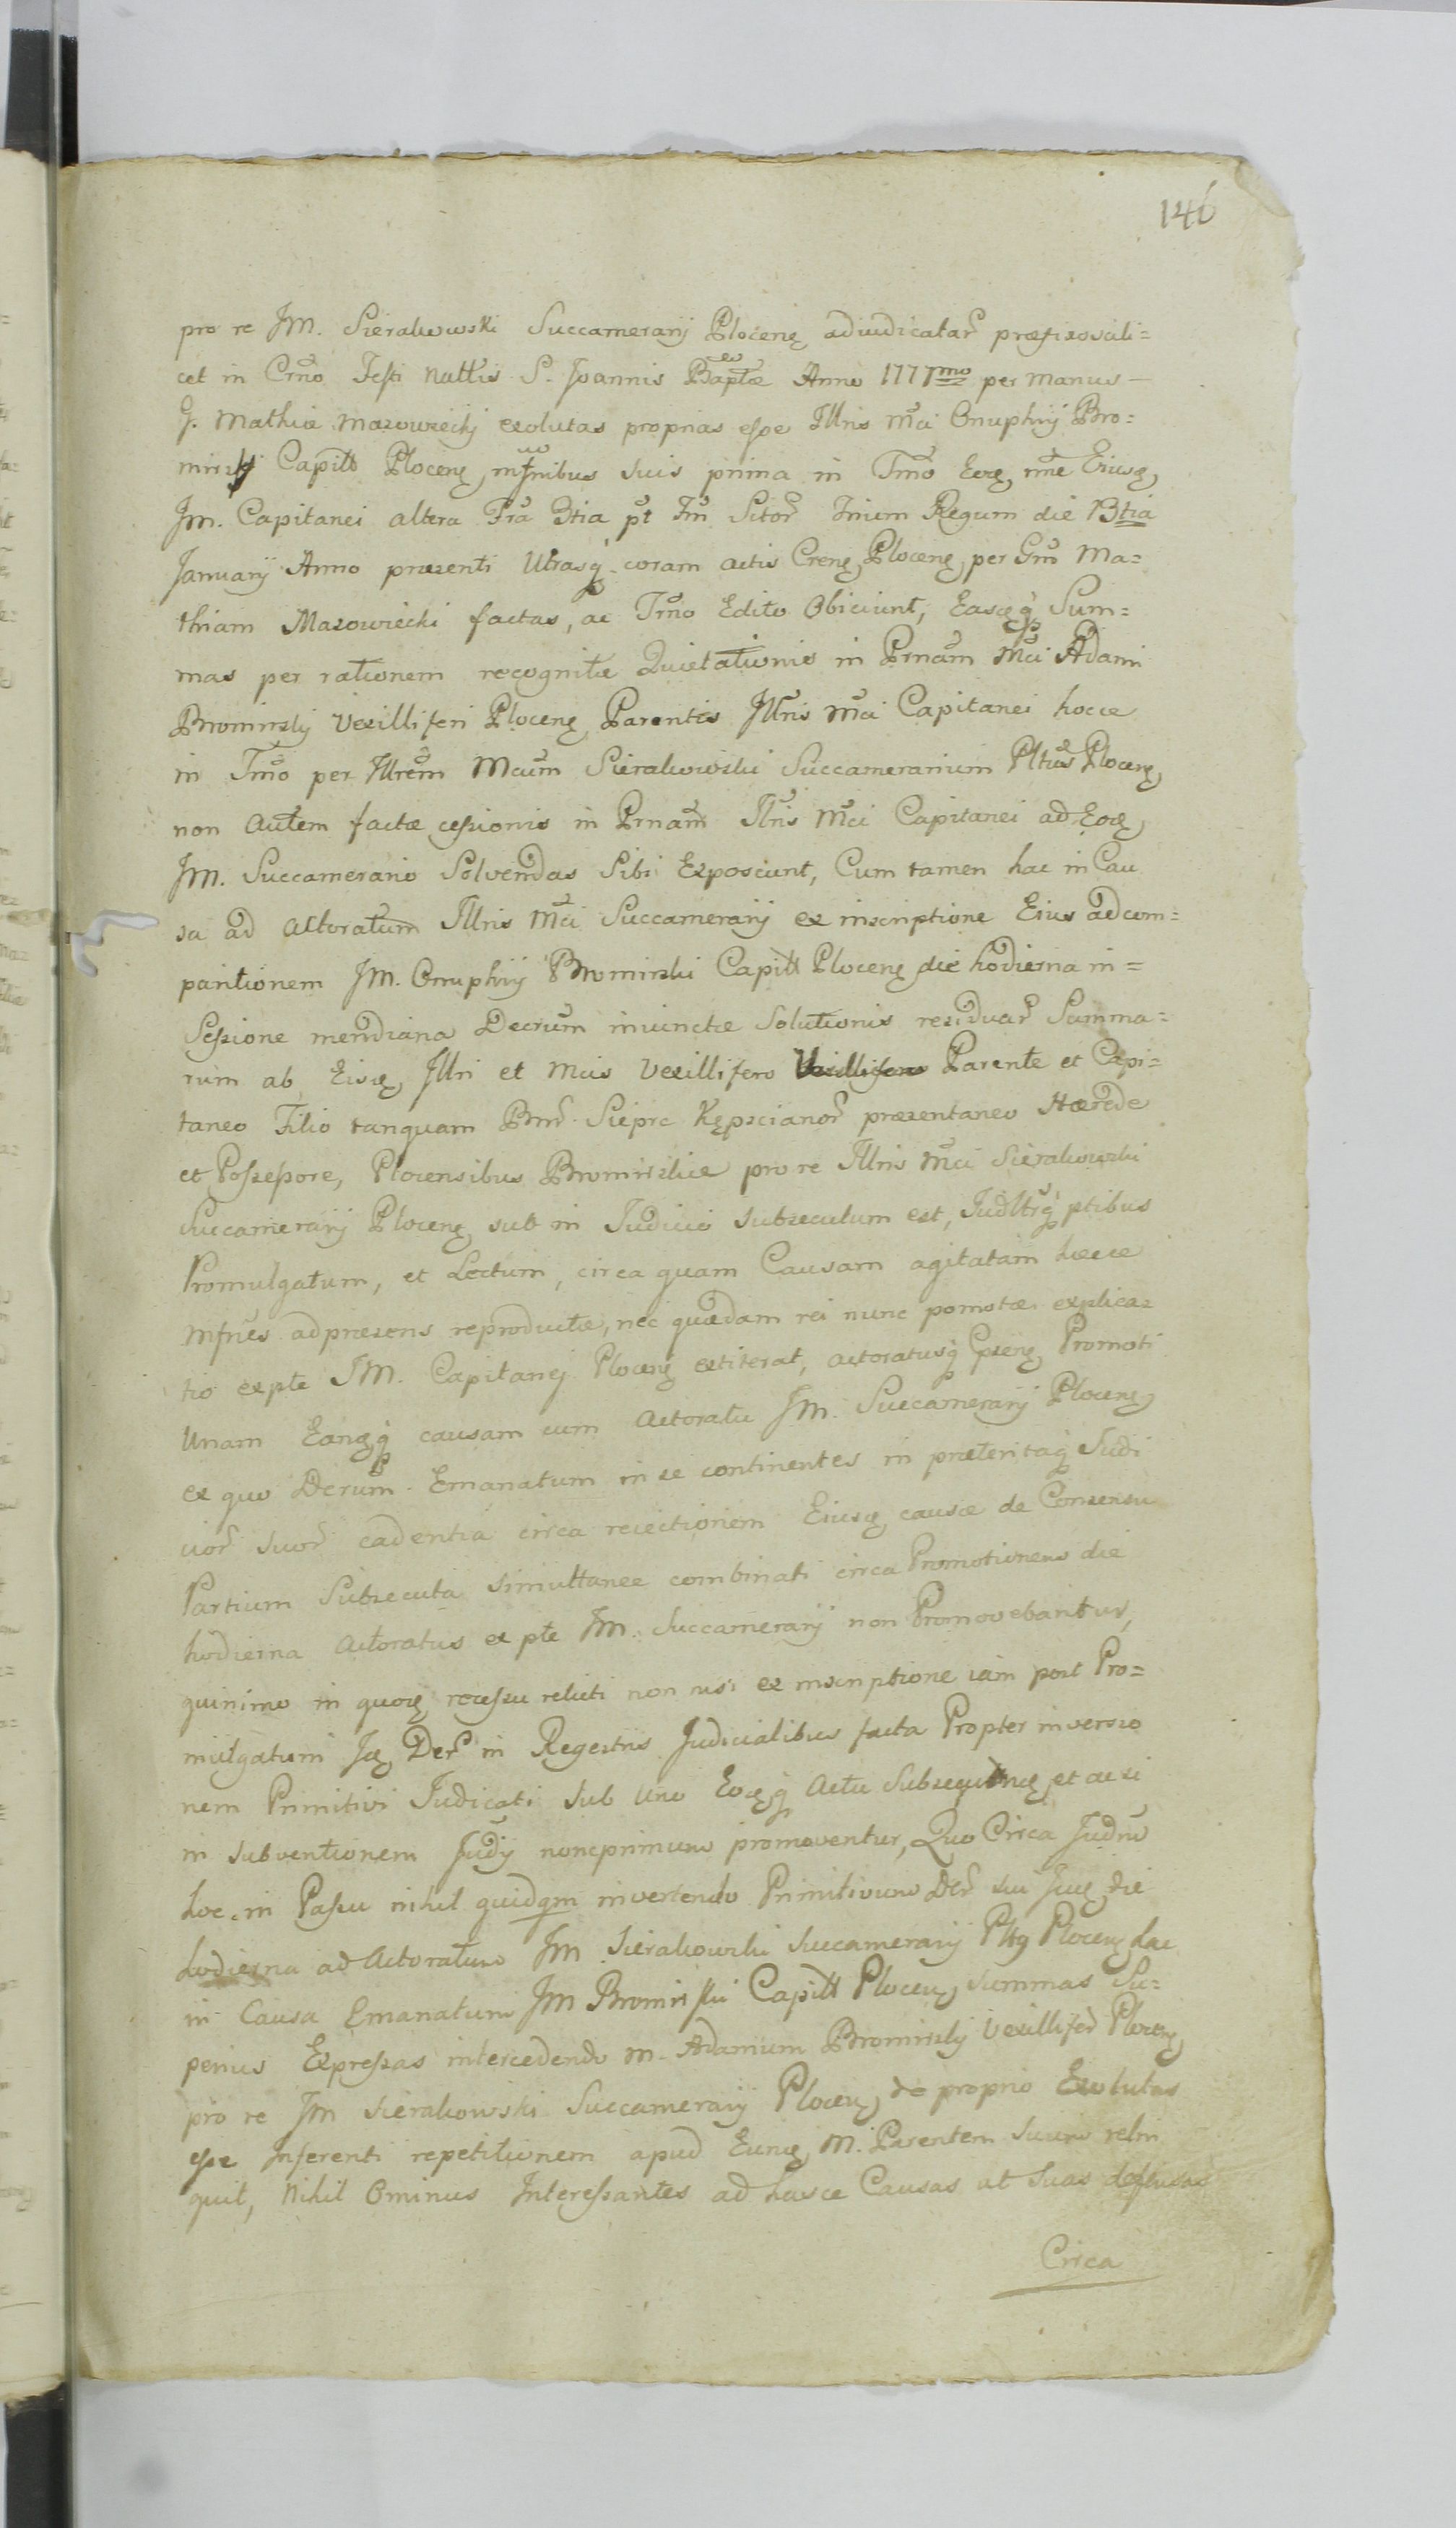 146
pro re JM. Sierakowski Succamerarij Plocenę adiudicatar̃ præfixo scili=
cet in Crño Festi Nattis S. Joannis Baptæ Anno 1777mo per manus —
G. Mathiæ Mazowiecki exolutas proprias esse Illris Mci Onuphrij Bro=
minskij Capitt Plocenę, mfnibus suis prima in Tmo Eoę, nne Eiusę,
JM. Capitanei altera Fra 3tia pt Fm Sctor̃ Trium Regum die 13tia
Januarij Anno præsenti Utrasq̃ coram actis Crenę, Plocenę, per Gm̃ Ma=
thiam Mazowiecki factas, ac Tmo Edito Obiciunt, Easęq̃ Sum=
mas per rationem recognitæ Quietationis in Prnam̃ Mci Adami
Brominskij Vexilliferi Plocenę, Parentis Illris Mci Capitanei hocce
in Tmo per Illrem̃ Mcum̃ Sierakowski Succamerarium Pltus Plocenę,
non Autem factæ cessionis in Prnam̃ Illris Mci Capitanei ad Eoę,
JM. Succamerario Solvendas Sibi Exposcunt, Cum tamen hac in Cau
sa ad Actoratum Illris Mci Succamerarij ex inscriptione Eius ad com=
paritionem JM. Onuphrij Brominski Capitt Plocenę die hodierna in=
Sessione meridiana Decrum̃ iniunctæ Solutionis residuar̃ Summa=
rum ab Eisę, Illri et Mcis Vexillifero Parente et Capi=
taneo Filio tanquam Bnr̃ Sieprc Kępscianor̃ præsentaneo Hærede
et Possessore, Plocensibus Brominskie pro re Illris Mci Sierakowski
Succamerarij Plocenę sub in Judicio subsecutum est, Judltrq̃ ptibus
Promulgatum, et Lectum, circa quam Causam agitatam hæcce
Mfnes ad præsens reproductæ, nec quædam rei nunc pomotæ explica=
tio ex pte JM. Capitanej Plocenę extiterat, actoratusq̃ Prenę Promoti
Unam Eanęq̃ causam cum Actoratu JM. Succamerarij Plocenę,
ex quo Dcrum̃ Emanatum in se continentes in præteritaq̃ Judi
cior̃ suor̃ cadentia circa reiectionem Eiusę causæ de Consensu
Partium Subsecuta simultanee combinati circa Promotionem die
hodierna Actoratus ex pte JM. Succamerarij non Promovebantur,
quinimo in quoę recessu relicti non nisi ex inscriptione iam post Pro=
mulgatum Ję, Dcr̃ in Regestris Judicialibus facta Propter inversio
nem Primitivi Judicati sub Uno Eoęq̃ Actu subsequę, et ac si
in subventionem Judij noncprimum promoventur, Quo Circa Judm̃
hoc in Passu nihil quidqm invertendo Primitivum Dcr̃ sui Jucę die
hodierna ad Actoratum JM Sierakowski Succamerarij Pltq Plocenę hac
in Causa Emanatum JM Brominski Capitt Plocenę, summas Su=
perius Expressas intercedendo M. Adamum Brominskij Vexillifer̃ Plocenę,
pro re JM Sierakowski Succamerarij Plocenę, de proprio Exolutas
esse Inferenti repetitionem apud Eunę M. Parentem Suum relin
quit, Nihil Ominus Interessantes ad hasce Causas at suas
Circa